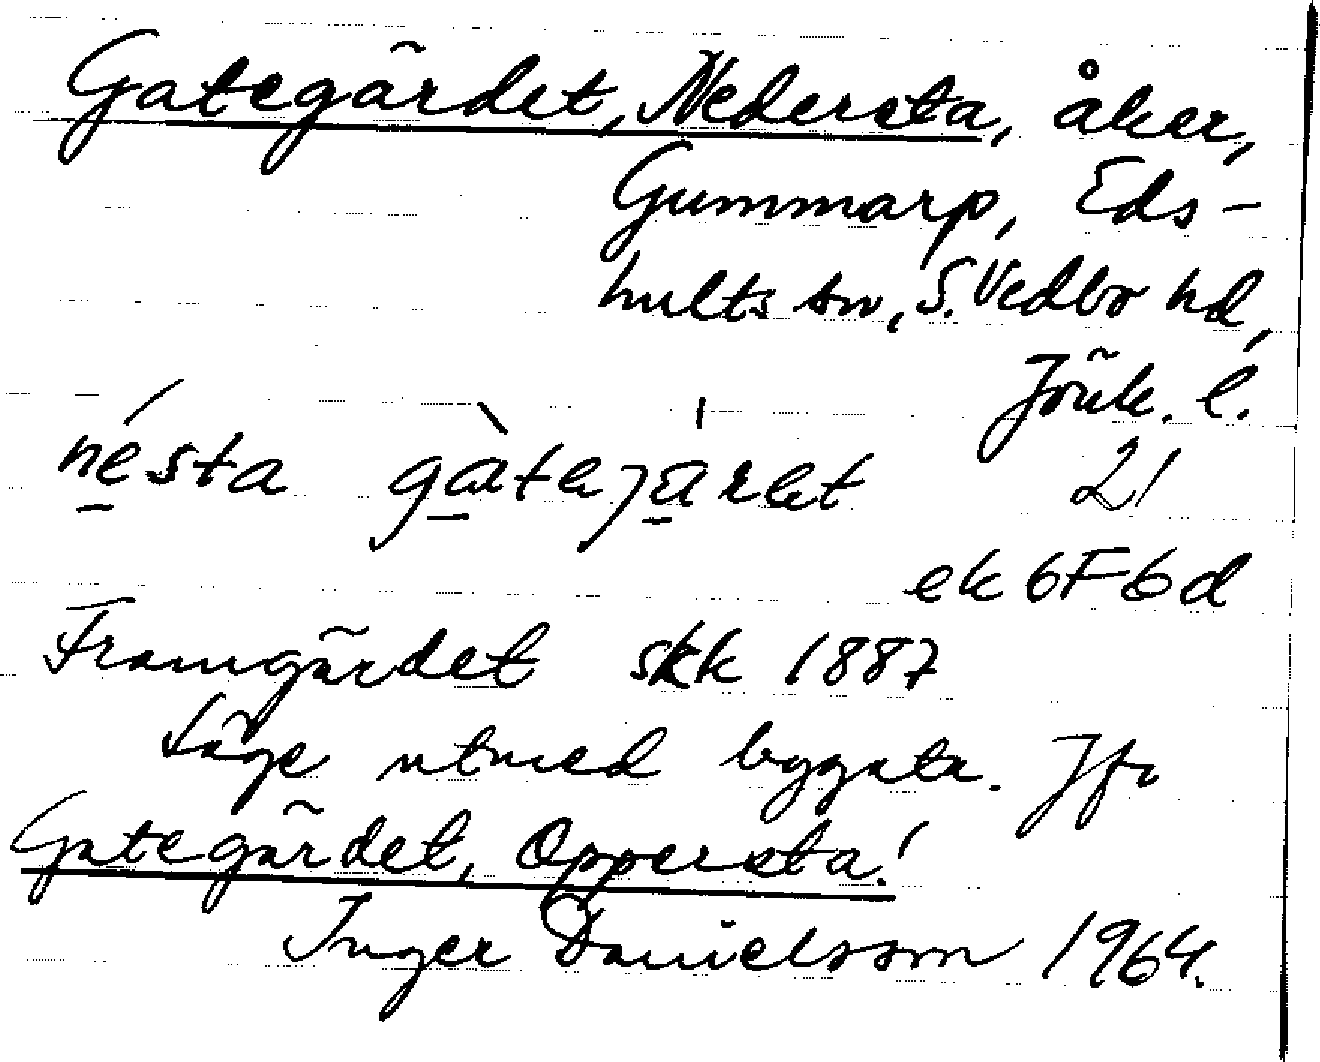 Gategärdet, Nedersta, åker,
Gummarp, Eds-
hults sn, S. Vedbo hd,
Jönk. l.
nésta gàtejäret 21
ek 6F6d
Framgärdet skk 1887
Läge utmed bygata. Jfr
Gategärdet, Oppersta!
Inger Danielsson 1964.